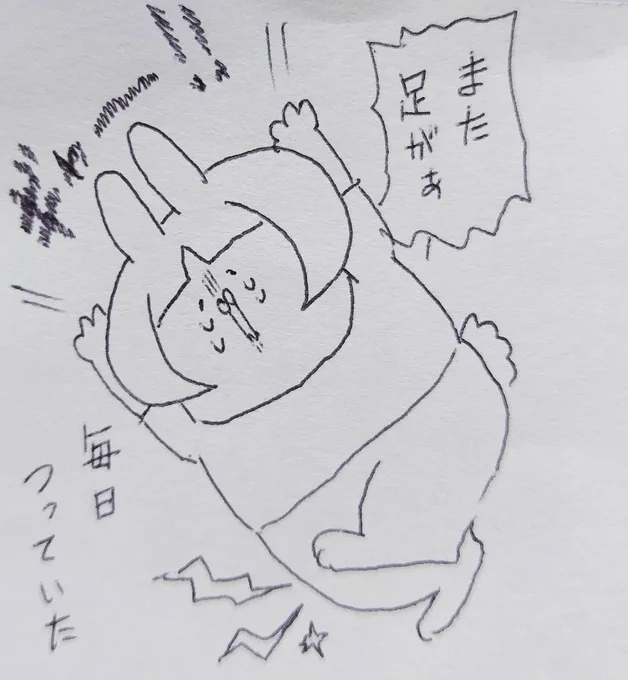 また
足がぁ
毎日
つっていた